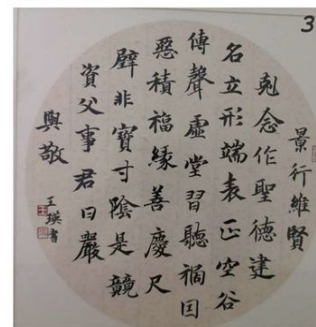 3
景行維賢
剋念作聖德建
名立形端表正空谷
傳聲虛堂習聽禍因
惡積福緣善慶尺
璧非寶寸陰是競
資父事君曰嚴
與敬
王瑛書